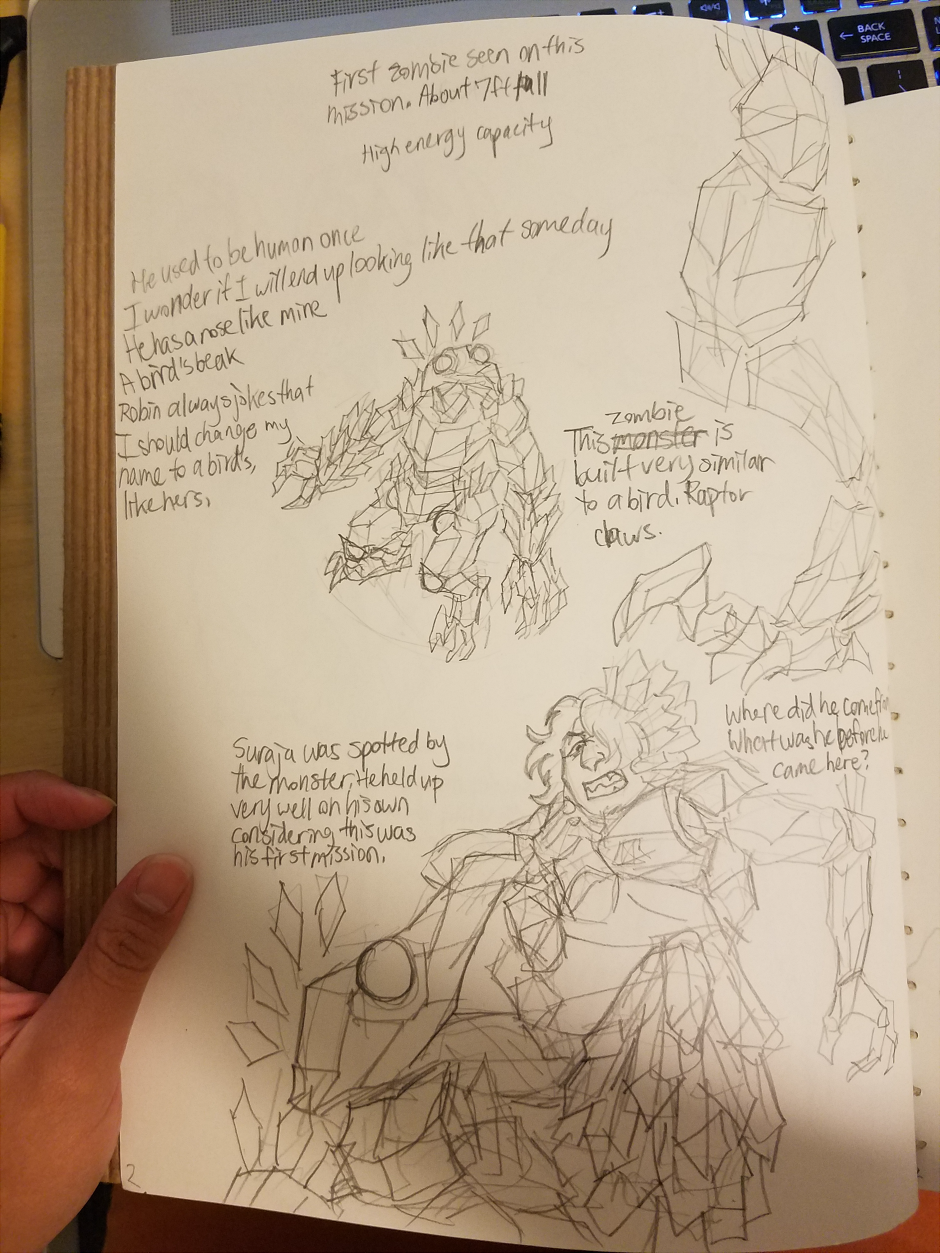 ← BACK
SPACE
First zombie seen on this
mission. About 7ft tall
High energy capacity
He used to be human once
I wonder if I will end up looking like that someday
He has a nose like mine
A bird's beak
Robin always jokes that
I should change my
name to a bird's,
like hers.
zombie
This monster is
built very similar
to a bird. Raptor
claws.
Suraja was spotted by
the monster. He held up
very well on his own
considering this was
his first mission.
Where did he come
What was he before
came here?
2